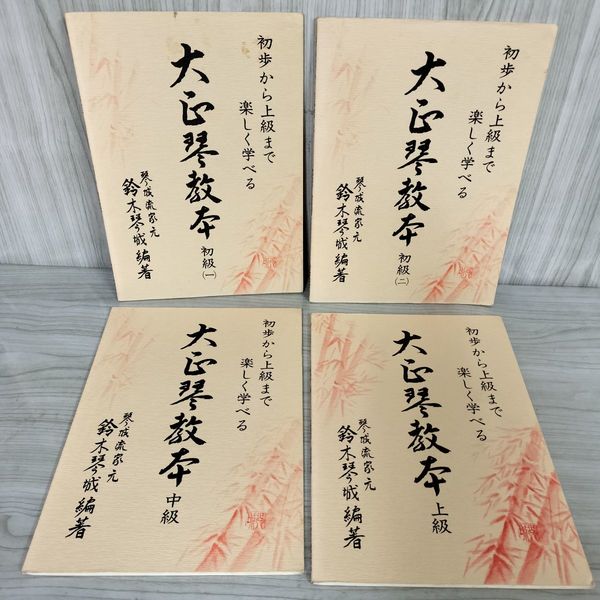 初歩から上級まで
楽しく学べる
大正琴教本
初級(一)
琴城流家元
鈴木琴城編著
初歩から上級まで
楽しく学べる
大正琴教本
初級(二)
琴城流家元
鈴木琴城編著
初歩から上級まで
楽しく学べる
大正琴教本
中級
琴城流家元
鈴木琴城編著
初歩から上級まで
楽しく学べる
大正琴教本
上級
琴城流家元
鈴木琴城編著